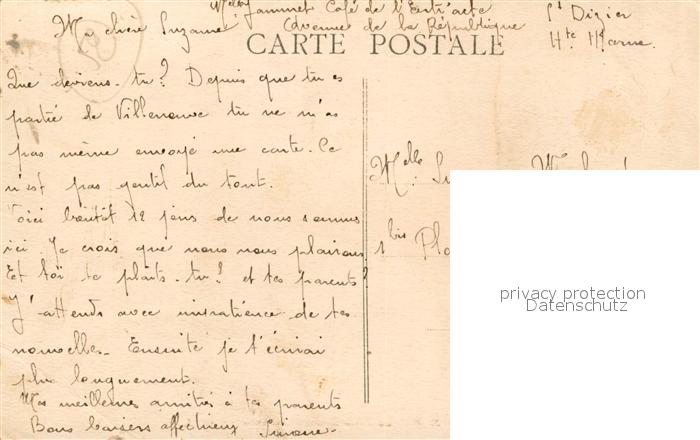 Melles Jammet Café de l'Entr'acte St Dizier
Ma chère Suzanne Avenue de la République Hte Marne.
CARTE POSTALE
Que deviens-tu? Depuis que tu es
partie de Villeneuve tu ne m'as
pas même envoyé une carte. Ce
n'est pas gentil du tout.
Voici bientôt 12 jours de nous sommes
ici. Je crois que nous nous plairons
Et toi te plaits-tu? et tes parents?
J'attends avec impatience de tes
nouvelles. Ensuite je t'écrirai
plus longuement.
Mes meilleures amitiés à tes parents
Bons baisers affectueux Simone.
Melle
1 bis
privacy protection
Datenschutz